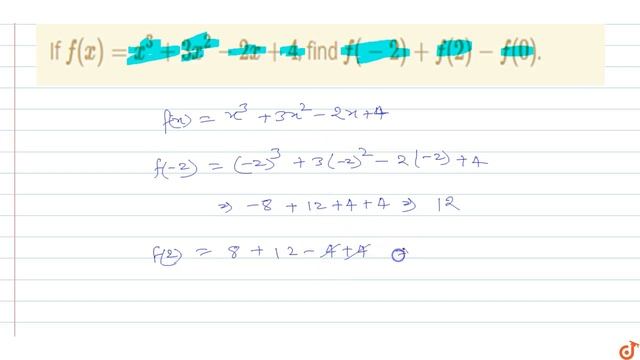 If f(x) = x³ + 3x² − 2x + 4, find f(−2) + f(2) − f(0).
f(x) = x³ + 3x² − 2x + 4
f(-2) = (-2)³ + 3(-2)² − 2(-2) + 4
⇒ -8 + 12 + 4 + 4 ⇒ 12
f(2) = 8 + 12 − 4 + 4